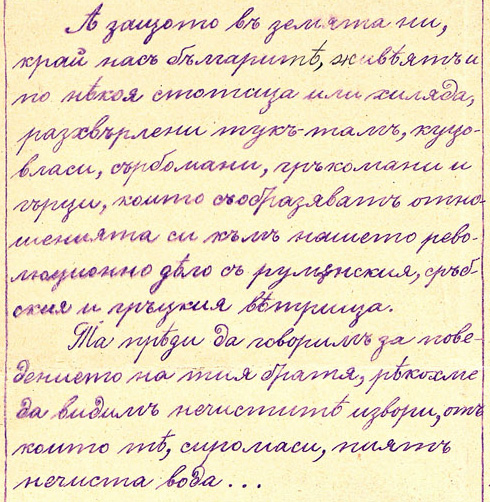 А защото въ земята ни,
край насъ българитѣ, живѣятъ и
по нѣкоя стотица или хиляда,
разхвърлени тукъ-тамъ, куцо-
власи, сърбомани, гръкомани и
гърци, които съобразяватъ отно-
шенията си къмъ нашето рево-
люционно дѣло съ румѫнския, сръб-
ския и гръцкия вѣтрища.
Та прѣди да говоримъ за пове-
дението на тия братя, рѣкохме
да видимъ нечиститѣ извори, отъ
които тѣ, сиромаси, пиятъ
нечиста вода...